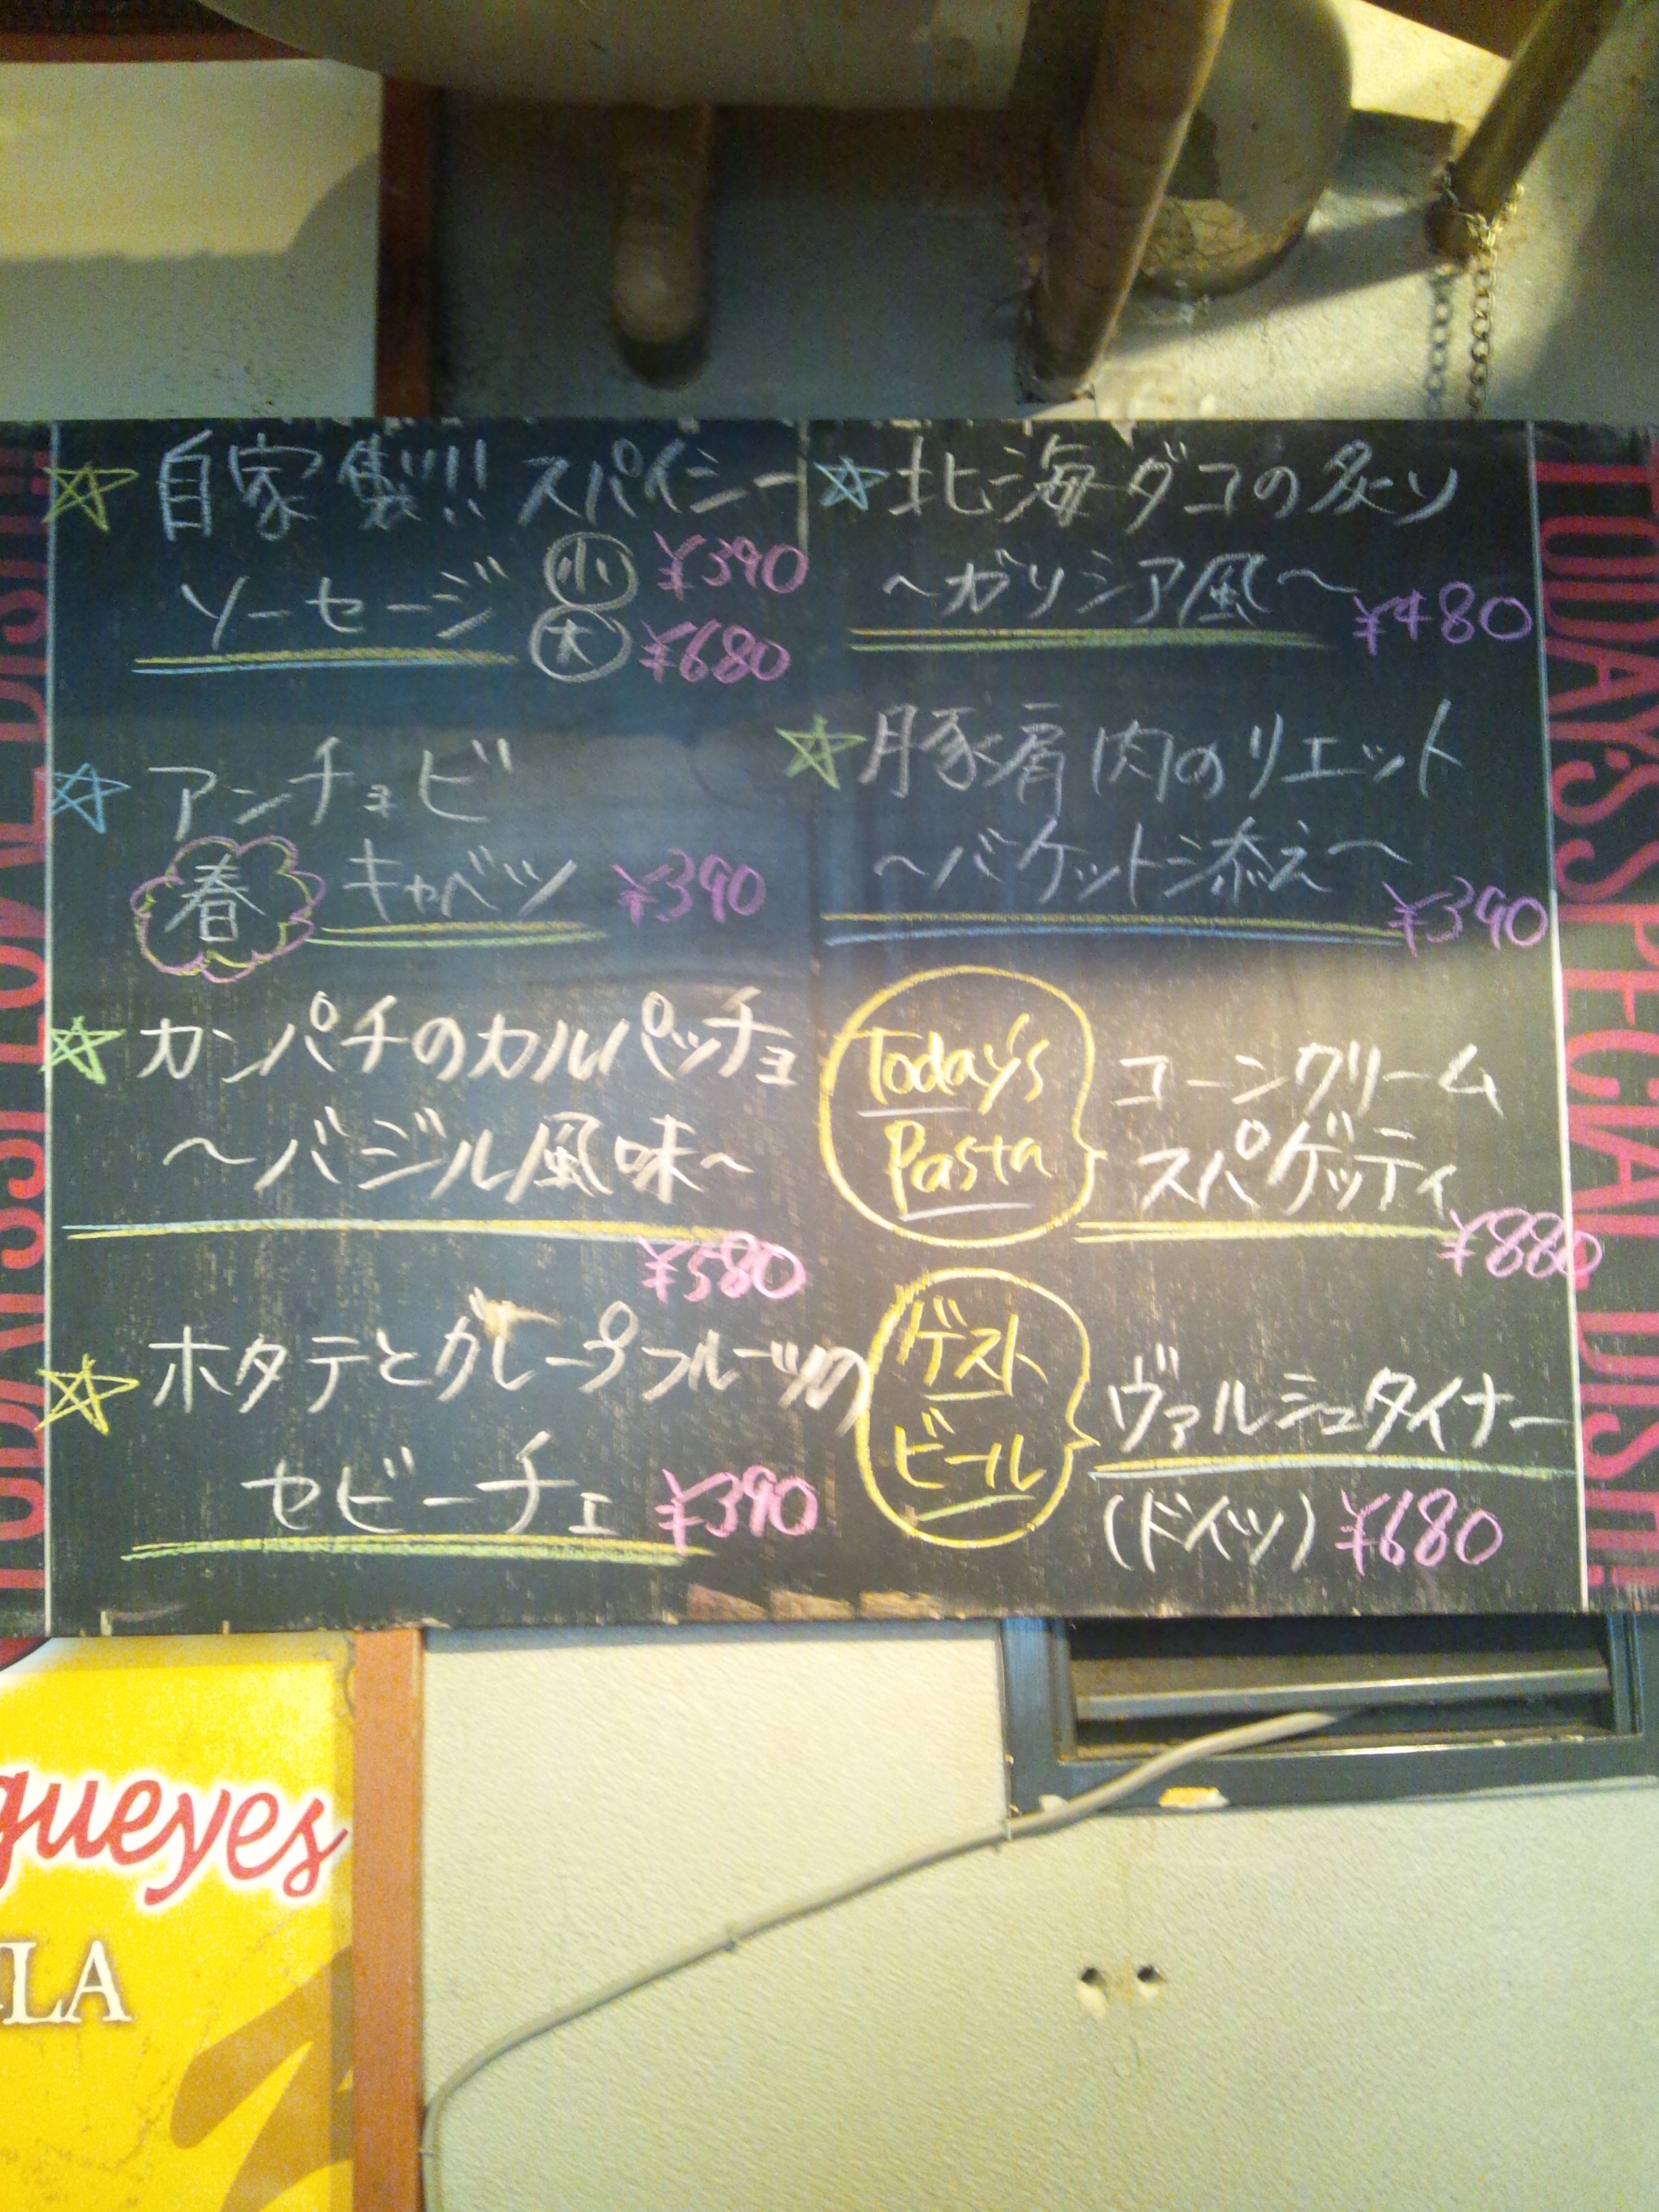 自家製!! スパイシー
ソーセージ 小 ¥390
大 ¥680
アンチョビ
春 キャベツ ¥390
カンパチのカルパッチョ
～バジル風味～
¥580
ホタテとグレープフルーツの
セビーチェ ¥390
北海ダコの炙り
～ガリシア風～ ¥480
豚肩肉のリエット
～バケット添え～
¥390
Today's
Pasta
コーンクリーム
スパゲッティ
¥880
ゲスト
ビール
ヴァルシュタイナー
(ドイツ) ¥680
TODAY'S SPECIAL DISH!!
gueyes
LA